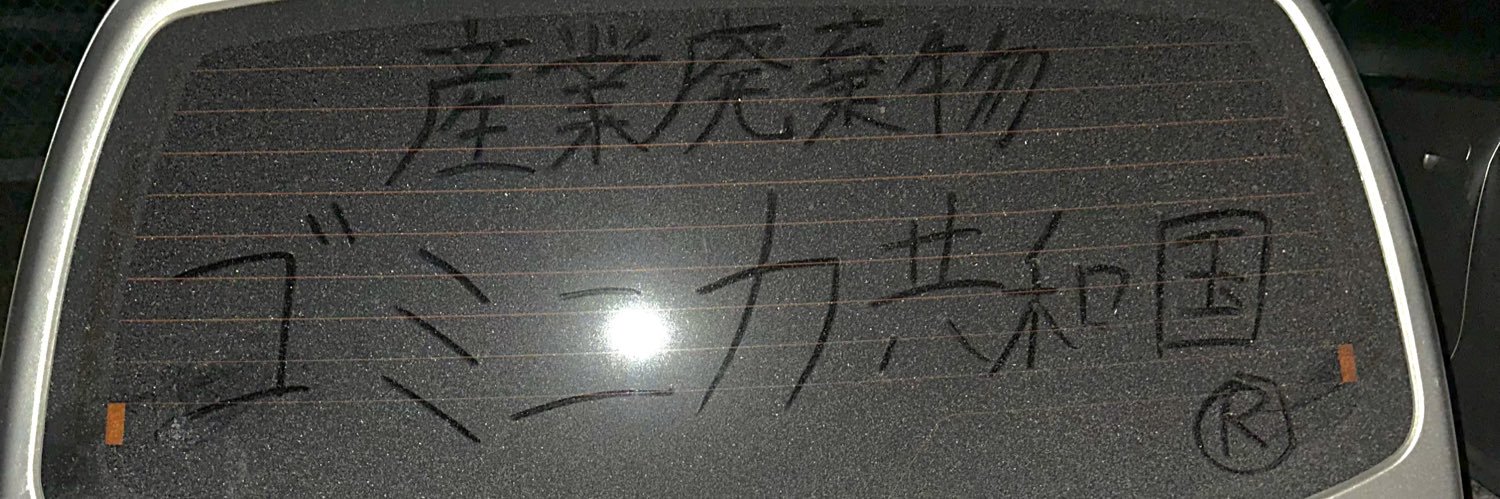 産業廃棄物
ゴミニカ共和国
Ⓡ